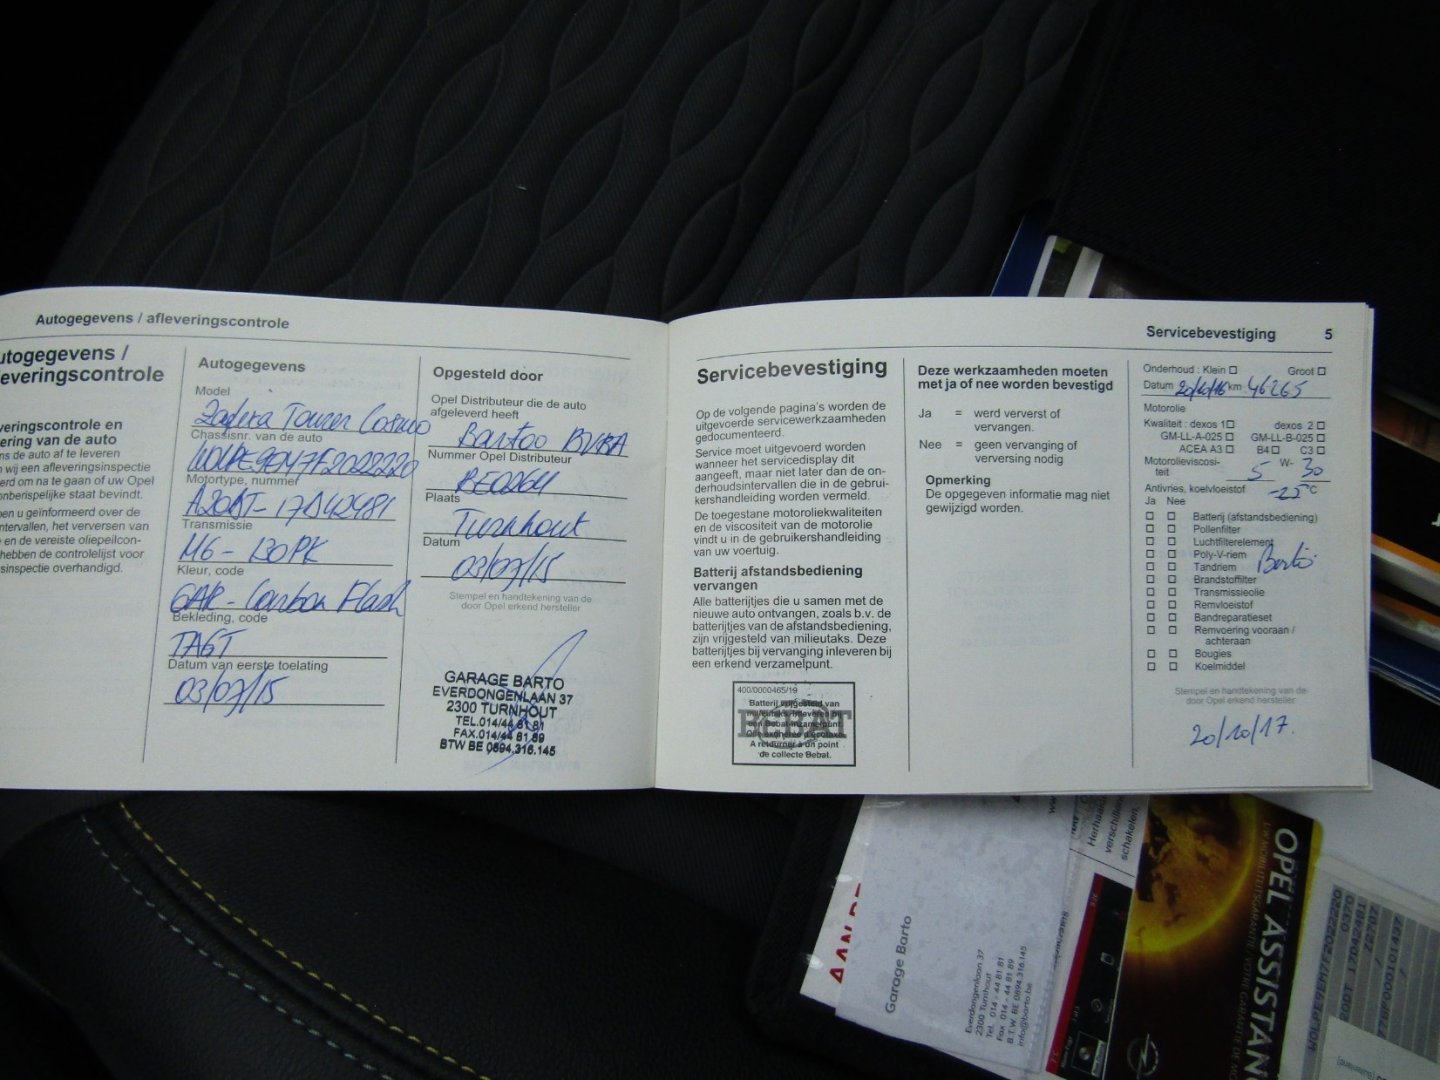 Autogegevens / afleveringscontrole
utogegevens /
everingscontrole
veringscontrole en
ering van de auto
ns de auto af te leveren
n wij een afleveringsinspectie
erd om na te gaan of uw Opel
onberispelijke staat bevindt.
en u geïnformeerd over de
ntervallen, het verversen van
e en de vereiste oliepeilcon-
hebben de controlelijst voor
sinspectie overhandigd.
Autogegevens
Model
Zafira Tourer Cosmo
Chassisnr. van de auto
W0LPE9EM7F2022220
Motortype, nummer
A20DT - 17042481
Transmissie
M6 - 130PK
Kleur, code
GAR - Carbon Flash
Bekleding, code
TAGT
Datum van eerste toelating
03/07/15
Opgesteld door
Opel Distributeur die de auto
afgeleverd heeft
Bartoo BVBA
Nummer Opel Distributeur
BE0264
Plaats
Turnhout
Datum
03/07/15
Stempel en handtekening van de
door Opel erkend hersteller
GARAGE BARTO
EVERDONGENLAAN 37
2300 TURNHOUT
TEL.014/44 81 81
FAX.014/44 81.89
BTW BE 0894.316.145
Servicebevestiging 5
Servicebevestiging
Op de volgende pagina's worden de
uitgevoerde servicewerkzaamheden
gedocumenteerd.
Service moet uitgevoerd worden
wanneer het servicedisplay dit
aangeeft, maar niet later dan de on-
derhoudsintervallen die in de gebrui-
kershandleiding worden vermeld.
De toegestane motoroliekwaliteiten
en de viscositeit van de motorolie
vindt u in de gebruikershandleiding
van uw voertuig.
Batterij afstandsbediening
vervangen
Alle batterijtjes die u samen met de
nieuwe auto ontvangen, zoals b.v. de
batterijtjes van de afstandsbediening,
zijn vrijgesteld van milieutaks. Deze
batterijtjes bij vervanging inleveren bij
een erkend verzamelpunt.
400/0000465/19
BEBAT
Batterij vrijgesteld van
A retourner à un point
de collecte Bebat.
Deze werkzaamheden moeten
met ja of nee worden bevestigd
Ja = werd ververst of
vervangen.
Nee = geen vervanging of
verversing nodig
Opmerking
De opgegeven informatie mag niet
gewijzigd worden.
Onderhoud : Klein ☐ Groot ☐
Datum 20/10/16 km 46265
Motorolie
Kwaliteit : dexos 1 ☐ dexos 2 ☐
GM-LL-A-025 ☐ GM-LL-B-025 ☐
ACEA A3 ☐ B4 ☐ C3 ☐
Motorolieviscosi-
teit 5 W- 30
Antivries, koelvloeistof -25 °C
Ja Nee
☐ ☐ Batterij (afstandsbediening)
☐ ☐ Pollenfilter
☐ ☐ Luchtfilterelement
☐ ☐ Poly-V-riem
☐ ☐ Tandriem
☐ ☐ Brandstoffilter
☐ ☐ Transmissieolie
☐ ☐ Remvloeistof
☐ ☐ Bandreparatieset
☐ ☐ Remvoering vooraan /
achteraan
☐ ☐ Bougies
☐ ☐ Koelmiddel
Barto
Stempel en handtekening van de
door Opel erkend hersteller
20/10/17.
Garage Barto
Everdongenlaan 37
2300 Turnhout
Tel. 014 - 44 81 81
Fax 014 - 44 81 89
B.T.W. BE 0894.316.145
info@barto.be
verschillen
schakelen.
OPEL ASSISTAN
W0LPE9EM7F2022220
20DT 17042481 0370